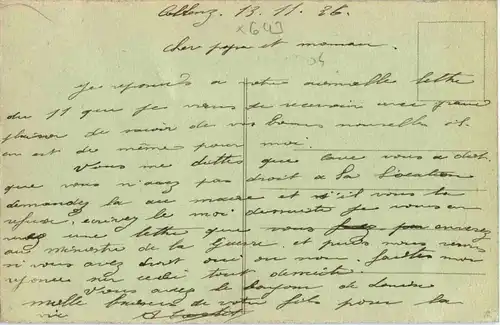 Coblenz. 13. 11. 26.
x643
Cher papa et maman.
Je réponds à votre aimable lettre
du 11 que je viens de recevoir avec grand
plaisir de savoir de vos bonnes nouvelles il
en est de même pour moi.
Vous me dites que vous a dit
que vous n'avez pas droit a la location
demandez la au maire et s'il vous la
refuse, écrivez le moi de suite je vous en
une lettre que vous envoiez
au ministre de la Guerre. et puis nous
si vous avez droit oui ou non. faites moi
reponse sur cela tout de suite.
Vous avez le de
mille baisers de votre fils pour la
vie